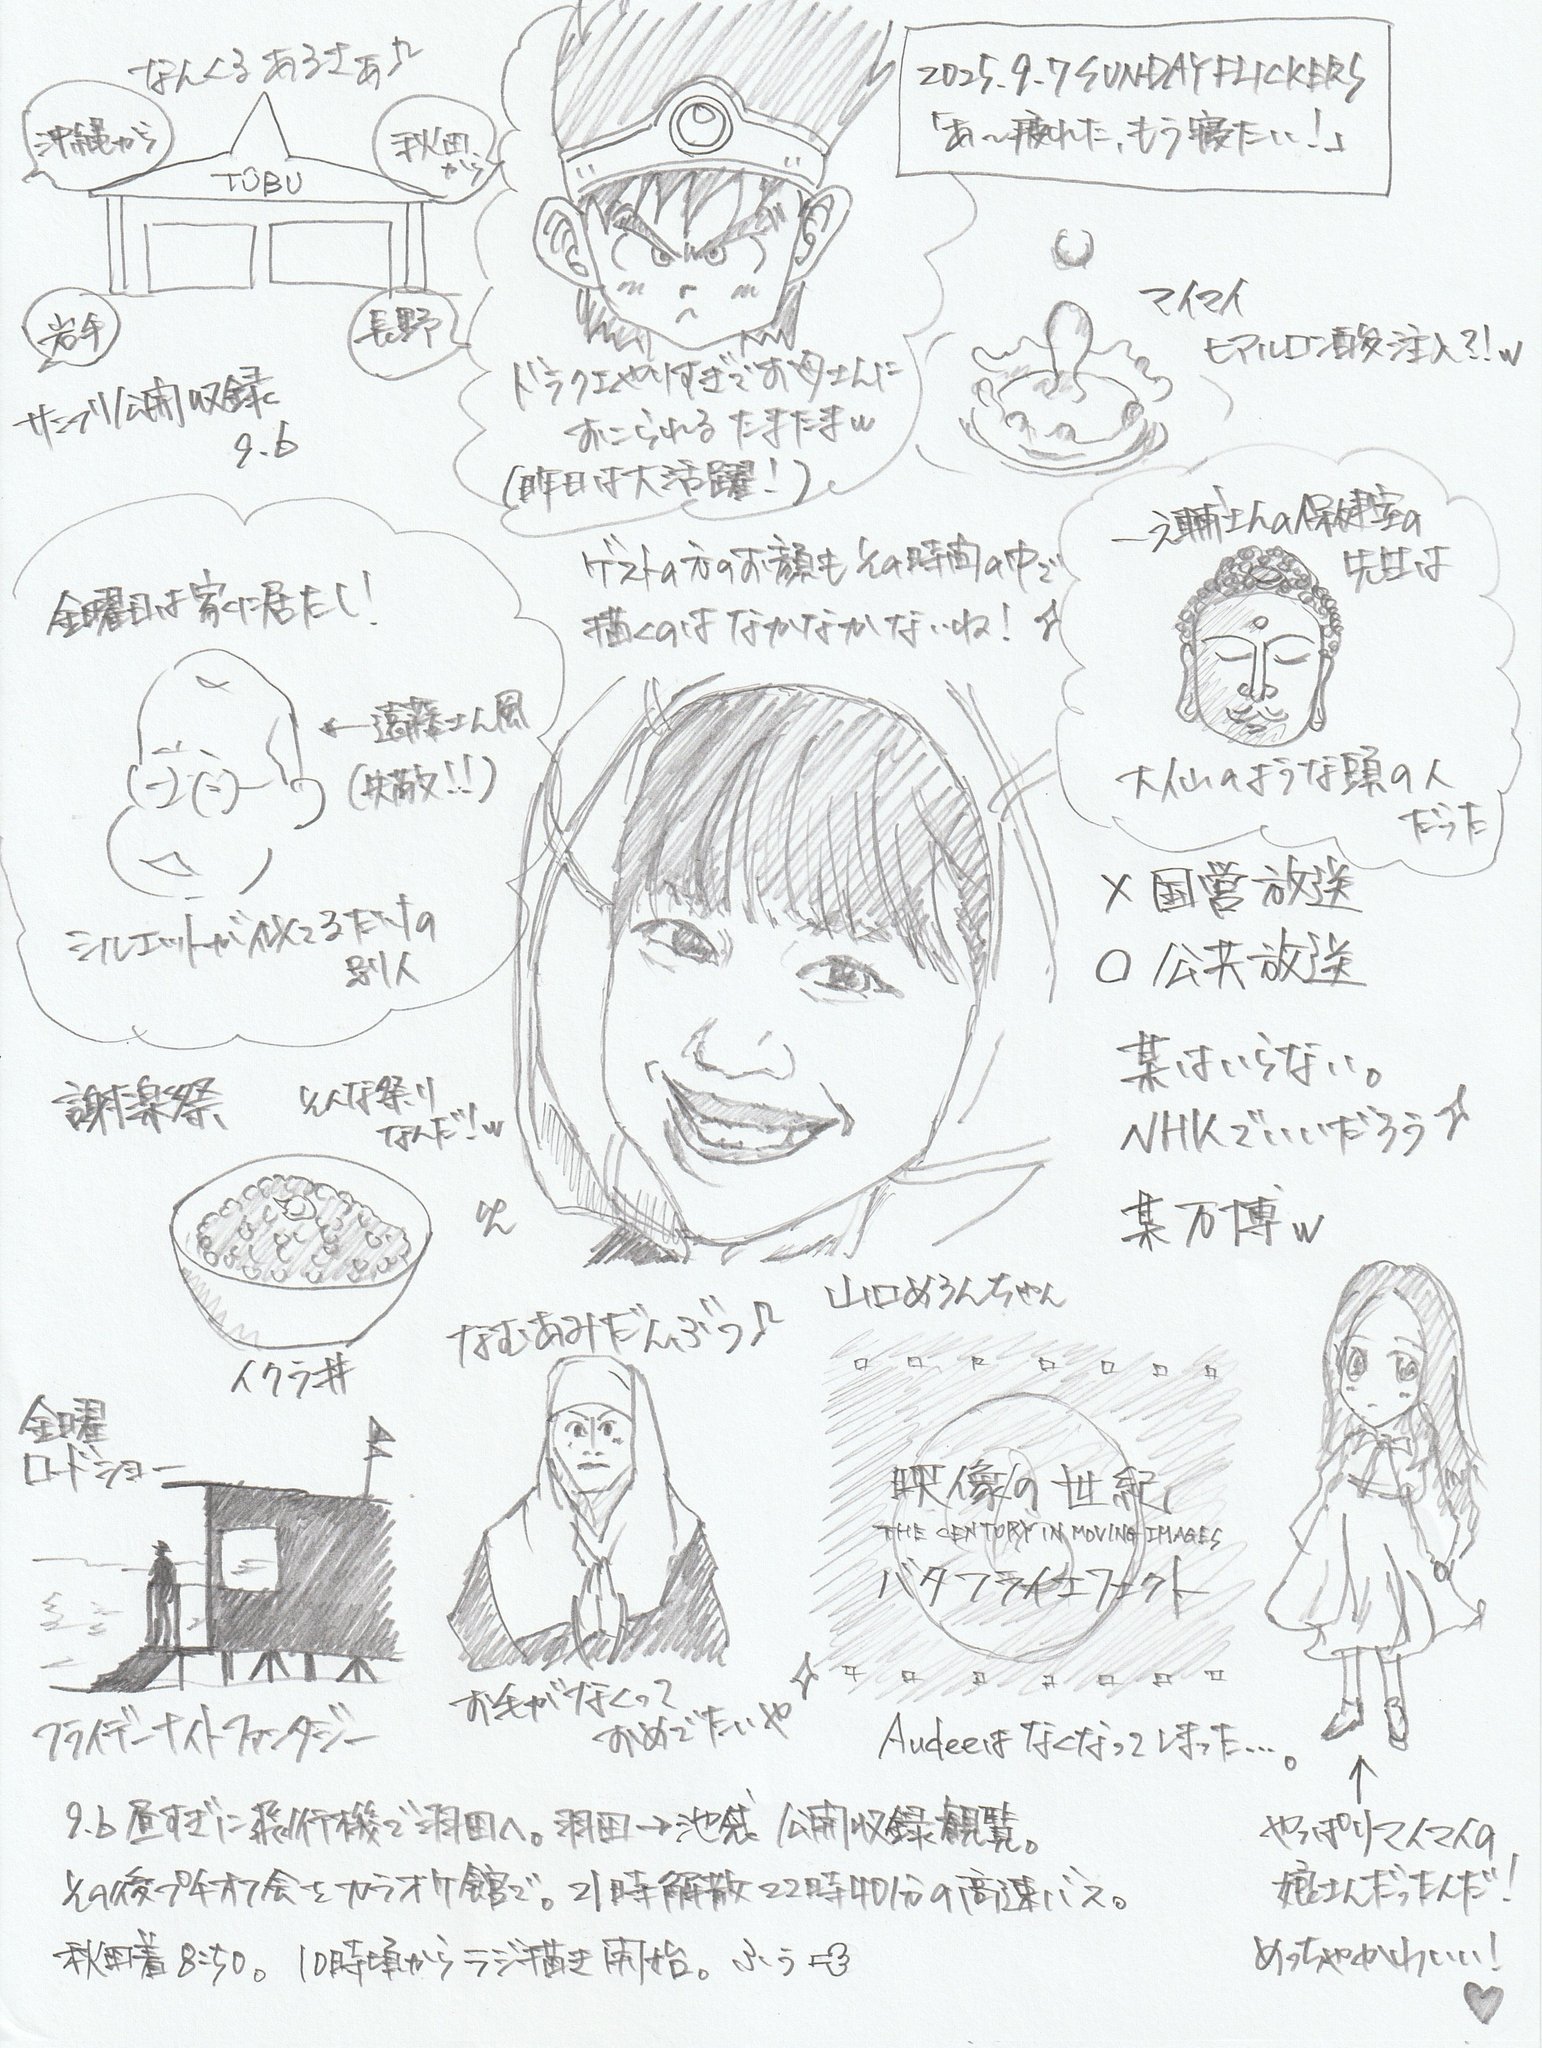 なんくるあるさぁ♪
沖縄から
秋田から
TOBU
岩手
長野
サンフリ公開収録
9.6
2025.9.7 SUNDAY FLICKERS
「あ〜疲れた、もう寝たい!」
ドラクエやりすぎでお母さんに
おこられるたまたまw
(昨日は大活躍!)
マイマイ
ヒアルロン酸注入?!w
一之輔さんの保健室の
先生は
大仏のような頭の人
だった
金曜日は家に居たし!
←遠藤さん風
(失敬!!)
シルエットが似てるだけの
別人
ゲストの方のお顔もその時間の中で
描くのはなかなかないね!
×国営放送
○公共放送
某はいらない。
NHKでいいだろう
某万博w
謝楽祭
そんな祭り
なんだ!w
イクラ丼
山口めろんちゃん
なむあみだんぶつ♪
お毛がなくって
おめでたいや
金曜
ロードショー
フライデーナイトファンタジー
映像の世紀
THE CENTURY IN MOVING IMAGES
バタフライエフェクト
Audeeはなくなってしまった…。
↑
やっぱりマイマイの
娘さんだったんだ!
めっちゃかわいい!
♥
9.6 昼すぎに飛行機で羽田へ。羽田→池袋 公開収録観覧。
その後プチオフ会をカラオケ館で。21時解散 22時40分の高速バス。
秋田着8:50。10時頃からラジ描き開始。ふぅ=3